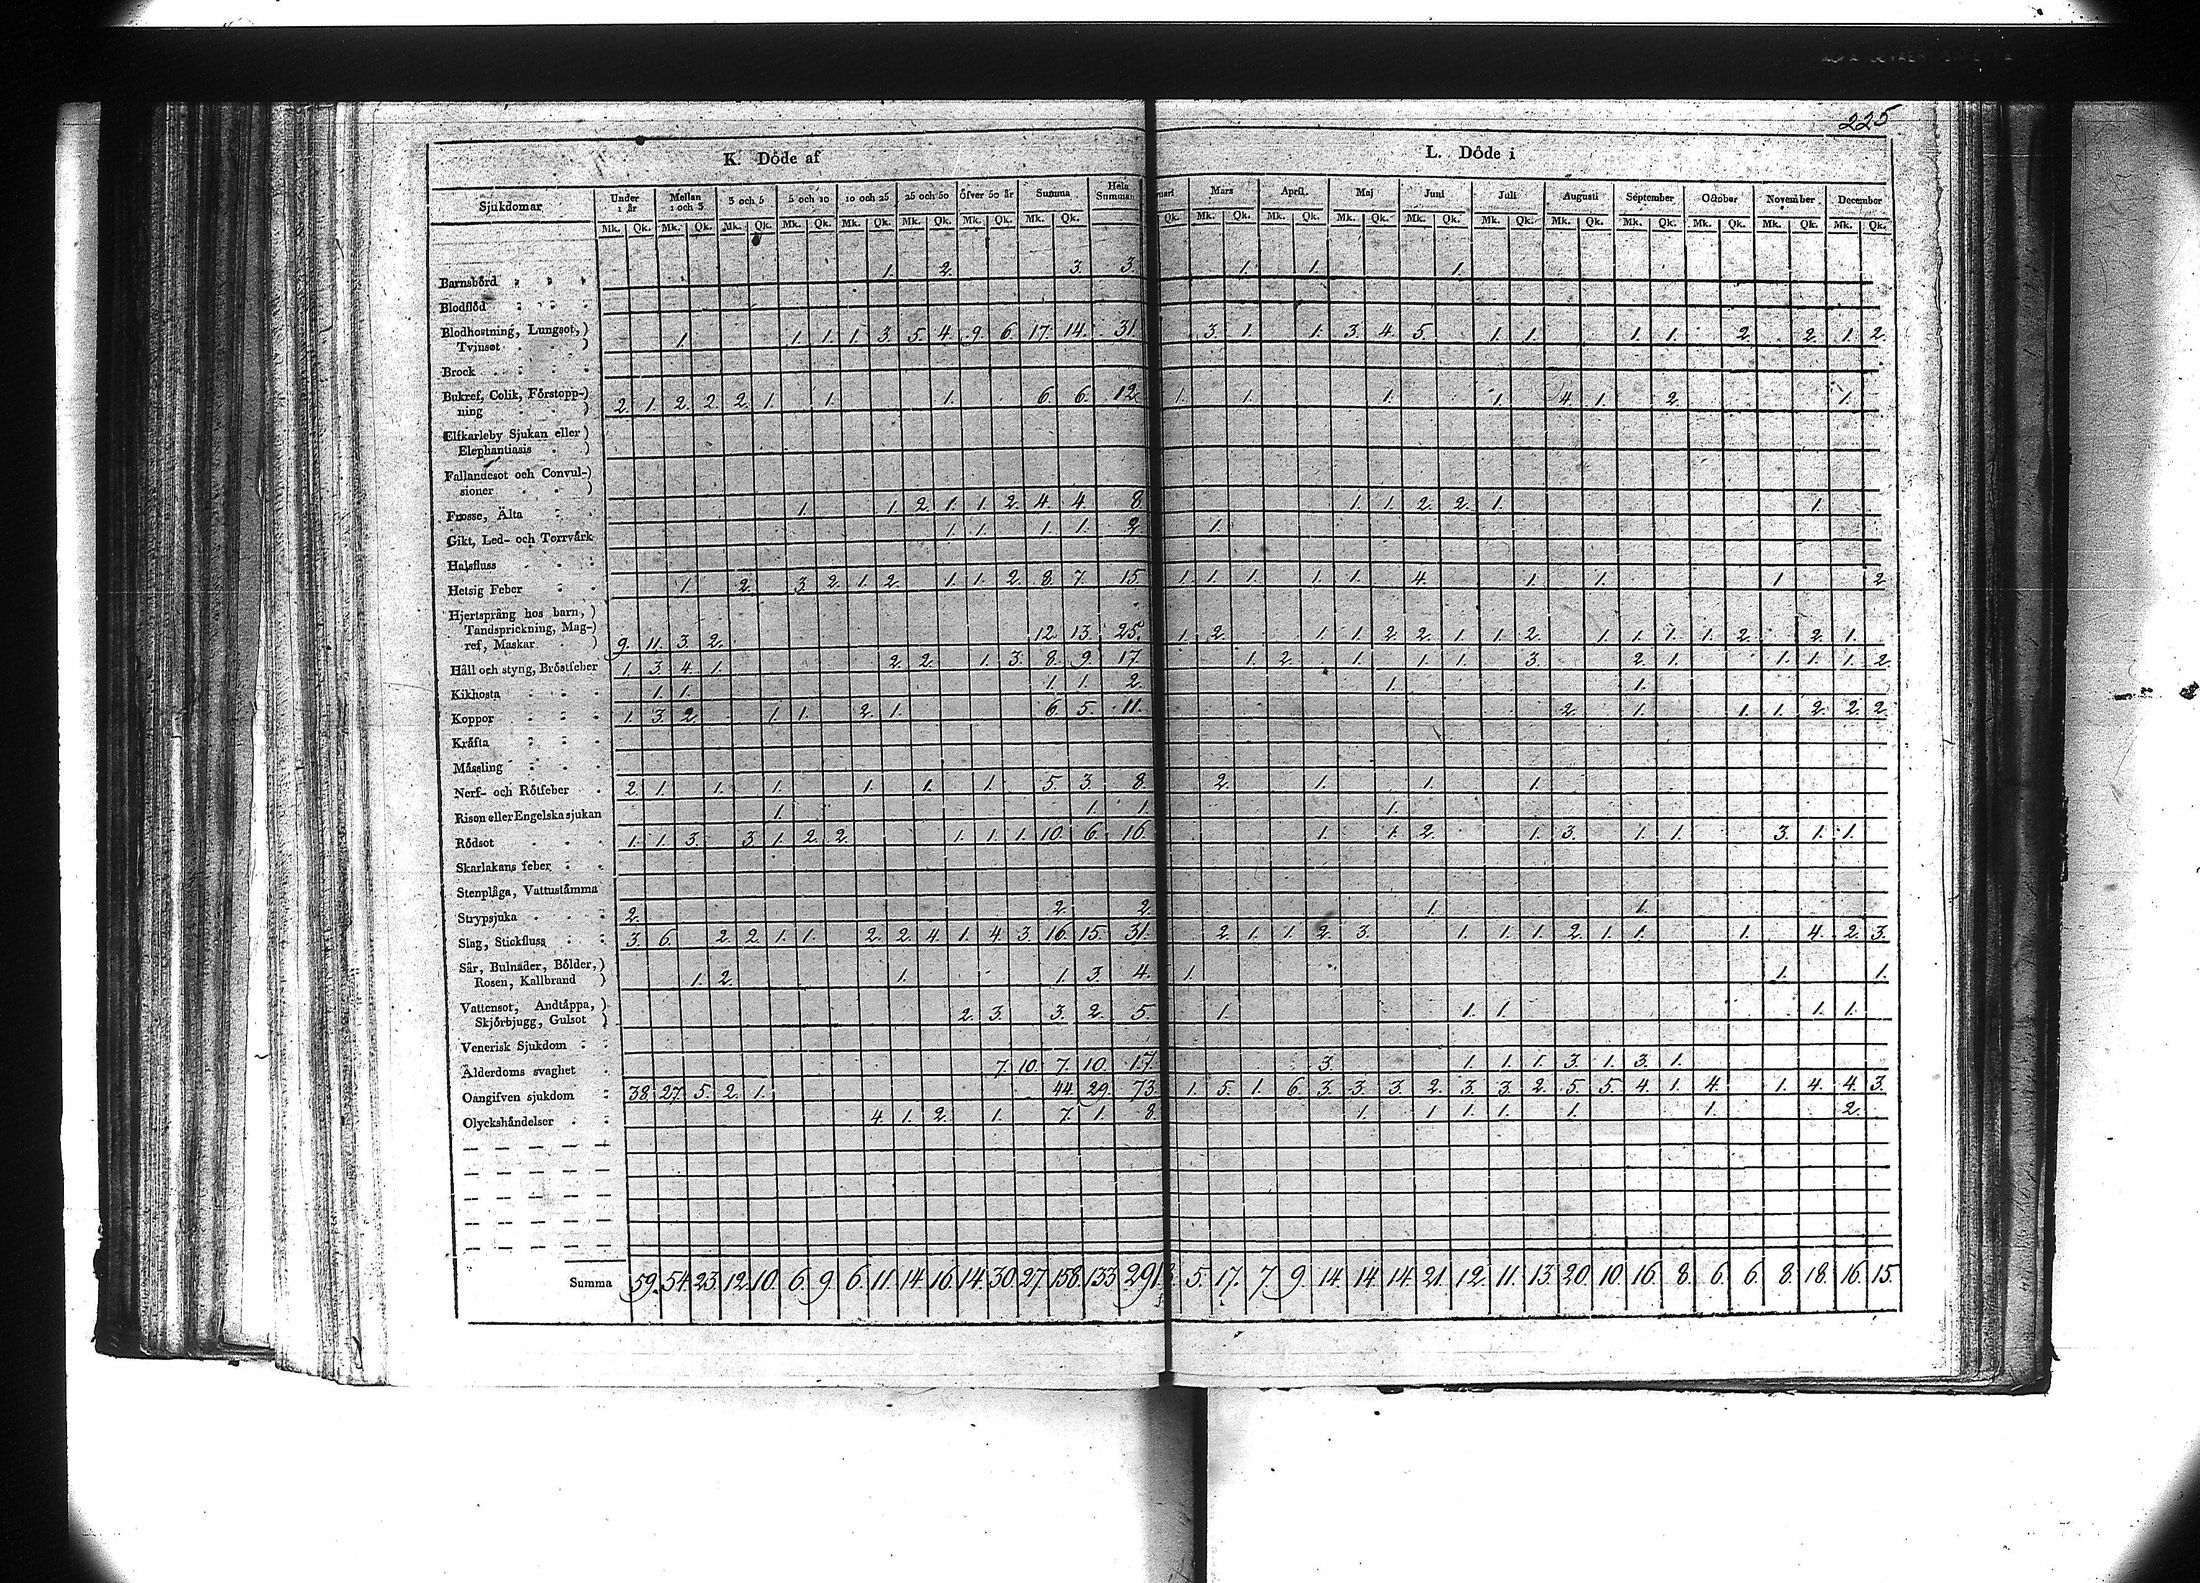 225
K. Döde af
L. Döde i
Sjukdomar Under 1 år Mellan 1 och 3 3 och 5 5 och 10 10 och 25 25 och 50 Öfver 50 år Summa Hela Summan Mars April. Maj Juni Juli Augusti September October November December
Mk. Qk. Mk. Qk. Mk. Qk. Mk. Qk. Mk. Qk. Mk. Qk. Mk. Qk. Mk. Qk. Qk. Mk. Qk. Mk. Qk. Mk. Qk. Mk. Qk. Mk. Qk. Mk. Qk. Mk. Qk. Mk. Qk. Mk. Qk. Mk. Qk.
Barnsbörd 1. 2. 3. 3. 1. 1. 1.
Blodflöd
Blodhostning, Lungsot,)
Tvinsot ) 1. 1. 1. 1. 3. 5. 4. 9. 6. 17. 14. 31. 3. 1. 1. 3. 4. 5. 1. 1. 1. 1. 2. 2. 1. 2.
Brock
Bukref, Colik, Förstopp-)
ning ) 2. 1. 2. 2. 2. 1. 1. 1. 6. 6. 12. 1. 1. 1. 1. 4. 1. 2. 1.
Elfkarleby Sjukan eller)
Elephantiasis )
Fallandesot och Convul-)
sioner )
Frosse, Älta 1. 1. 2. 1. 1. 2. 4. 4. 8 1. 1. 2. 2. 1. 1.
Gikt, Led- och Torrvärk 1. 1. 1. 1. 2. 1.
Halsfluss
Hetsig Feber 1. 2. 3. 2. 1. 2. 1. 1. 2. 8. 7. 15. 1. 1. 1. 1. 1. 4. 1. 1. 1. 2
Hjertsprång hos barn,)
Tandsprickning, Mag-)
ref, Maskar ) 9. 11. 3. 2. 12. 13. 25. 1. 2. 1. 1. 2. 2. 1. 1. 2. 1. 1. 1. 1. 2. 2. 1.
Håll och styng, Bröstfeber 1. 3. 4. 1. 2. 2. 1. 3. 8. 9. 17. 1. 2. 1. 1. 1. 3. 2. 1. 1. 1. 1. 2.
Kikhosta 1. 1. 1. 1. 2. 1. 1.
Koppor 1. 3. 2. 1. 1. 2. 1. 6. 5. 11. 2. 1. 1. 1. 2. 2. 2.
Kräfta
Mässling
Nerf- och Rötfeber 2. 1. 1. 1. 1. 1. 1. 5. 3. 8. 2. 1. 1. 1.
Rison eller Engelska sjukan 1. 1. 1. 1.
Rödsot 1. 1. 3. 3. 1. 2. 2. 1. 1. 1. 10. 6. 16. 1. 1. 2. 1. 3. 1. 1. 3. 1. 1.
Skarlakans feber
Stenplåga, Vattustämma
Strypsjuka 2. 2. 2. 1. 1.
Slag, Stickfluss 3. 6. 2. 2. 1. 1. 2. 2. 4. 1. 4. 3. 16. 15. 31. 2. 1. 1. 2. 3. 1. 1. 1. 2. 1. 1. 1. 4. 2. 3.
Sår, Bulnader, Bölder,)
Rosen, Kallbrand ) 1. 2. 1. 1. 3. 4. 1. 1. 1.
Vattensot, Andtäppa,)
Skjörbjugg, Gulsot ) 2. 3. 3. 2. 5. 1. 1. 1. 1. 1.
Venerisk Sjukdom
Ålderdoms svaghet 7. 10. 7. 10. 17. 3. 1. 1. 1. 3. 1. 3. 1.
Oangifven sjukdom 38. 27. 5. 2. 1. 44. 29. 73. 1. 5. 1. 6. 3. 3. 3. 2. 3. 3. 2. 5. 5. 4. 1. 4. 1. 4. 4. 3.
Olyckshändelser 4. 1. 2. 1. 7. 1. 8. 1. 1. 1. 1. 1. 1. 2.
Summa 59. 54. 23. 12. 10. 6. 9. 6. 11. 14. 16. 14. 30. 27. 158. 133. 291. 5. 17. 7. 9. 14. 14. 14. 21. 12. 11. 13. 20. 10. 16. 8. 6. 6. 8. 18. 16. 15.